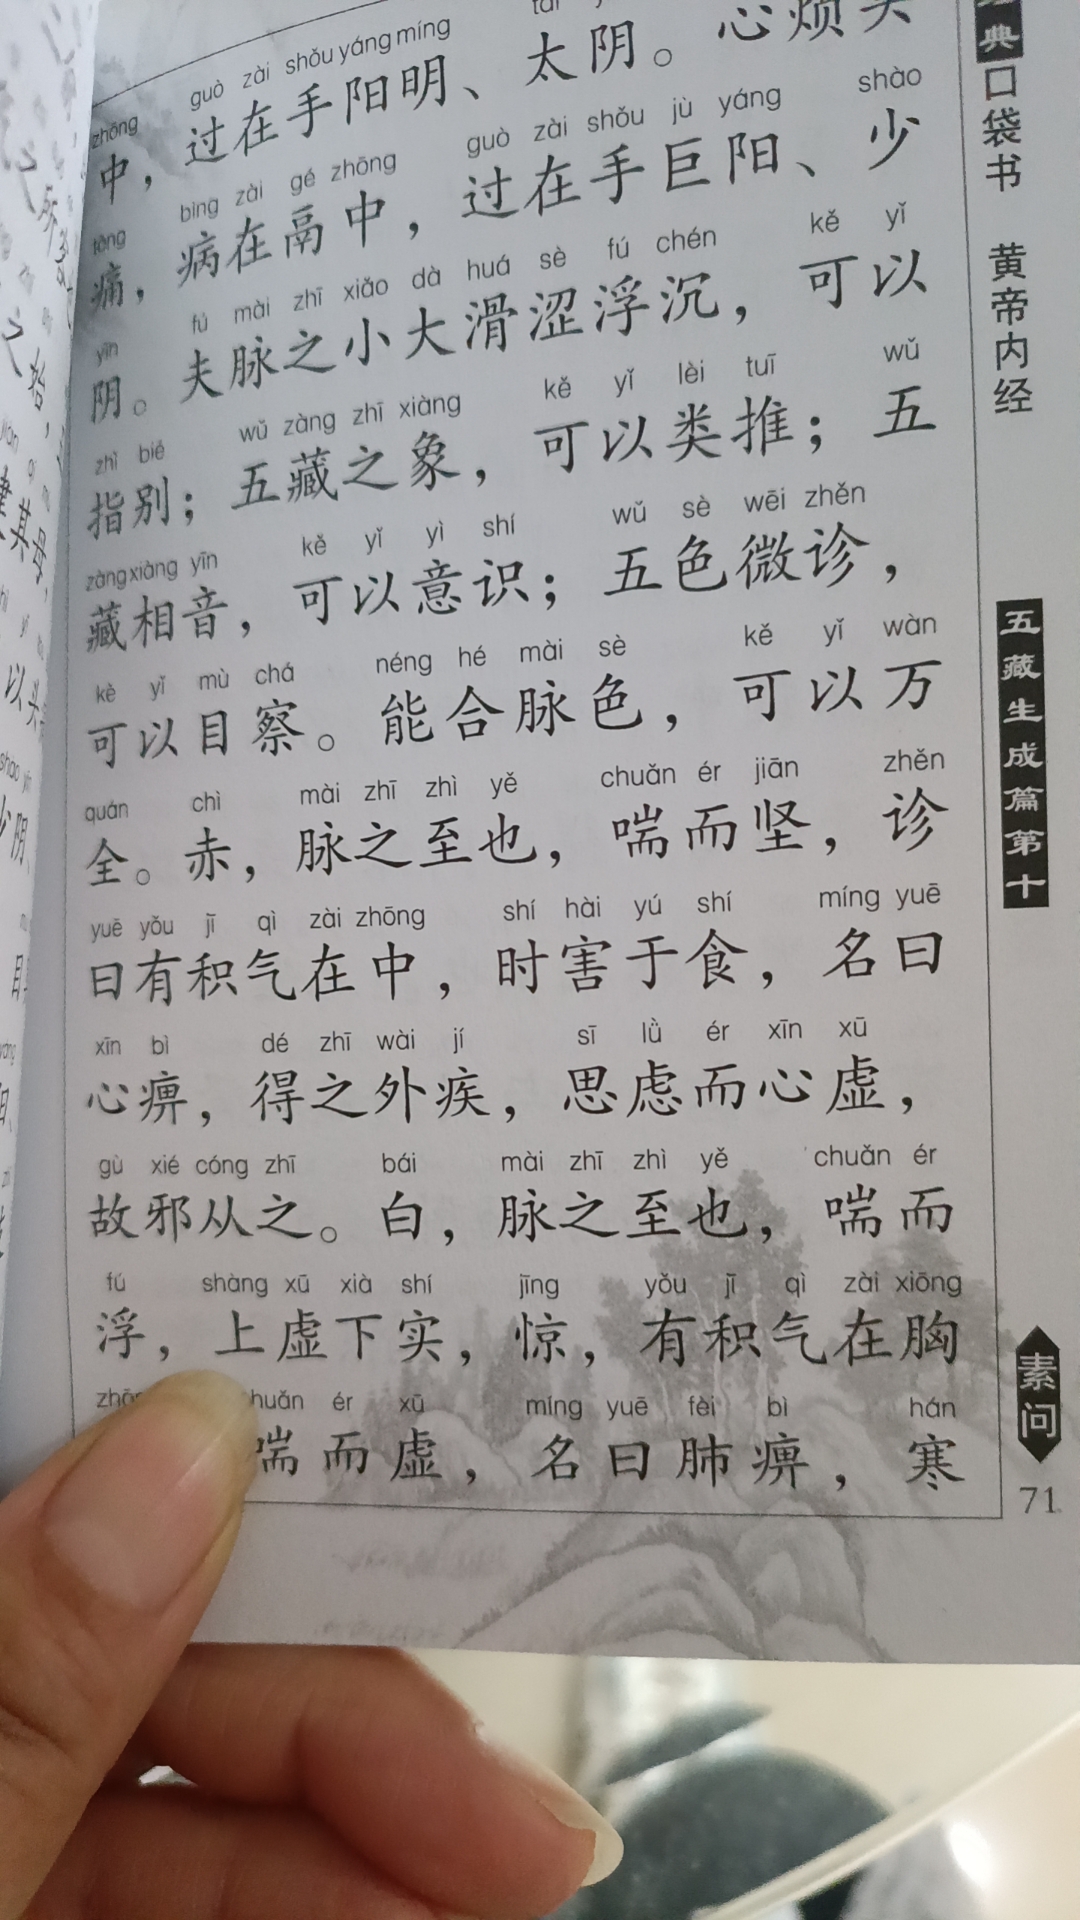 guò zài shǒu yáng míng
中，过在手阳明、太阴。心烦头
zhōng guò zài shǒu jù yáng shào
tòng bìng zài gé zhōng
痛，病在鬲中，过在手巨阳、少
yīn fú mài zhī xiǎo dà huá sè fú chén kě yǐ
阴。夫脉之小大滑涩浮沉，可以
zhì bié wǔ zàng zhī xiàng kě yǐ lèi tuī wǔ
指别；五藏之象，可以类推；五
zàng xiàng yīn kě yǐ yì shí wǔ sè wēi zhěn
藏相音，可以意识；五色微诊，
kè yǐ mù chá néng hé mài sè kě yǐ wàn
可以目察。能合脉色，可以万
quán chì mài zhī zhì yě chuǎn ér jiān zhěn
全。赤，脉之至也，喘而坚，诊
yuē yǒu jī qì zài zhōng shí hài yú shí míng yuē
曰有积气在中，时害于食，名曰
xīn bì dé zhī wài jí sī lǜ ér xīn xū
心痹，得之外疾，思虑而心虚，
gù xié cóng zhī bái mài zhī zhì yě chuǎn ér
故邪从之。白，脉之至也，喘而
fú shàng xū xià shí jīng yǒu jī qì zài xiōng
浮，上虚下实，惊，有积气在胸
ér xū míng yuē fèi bì hán
喘而虚，名曰肺痹，寒
典口袋书 黄帝内经
五藏生成篇第十
素问
71